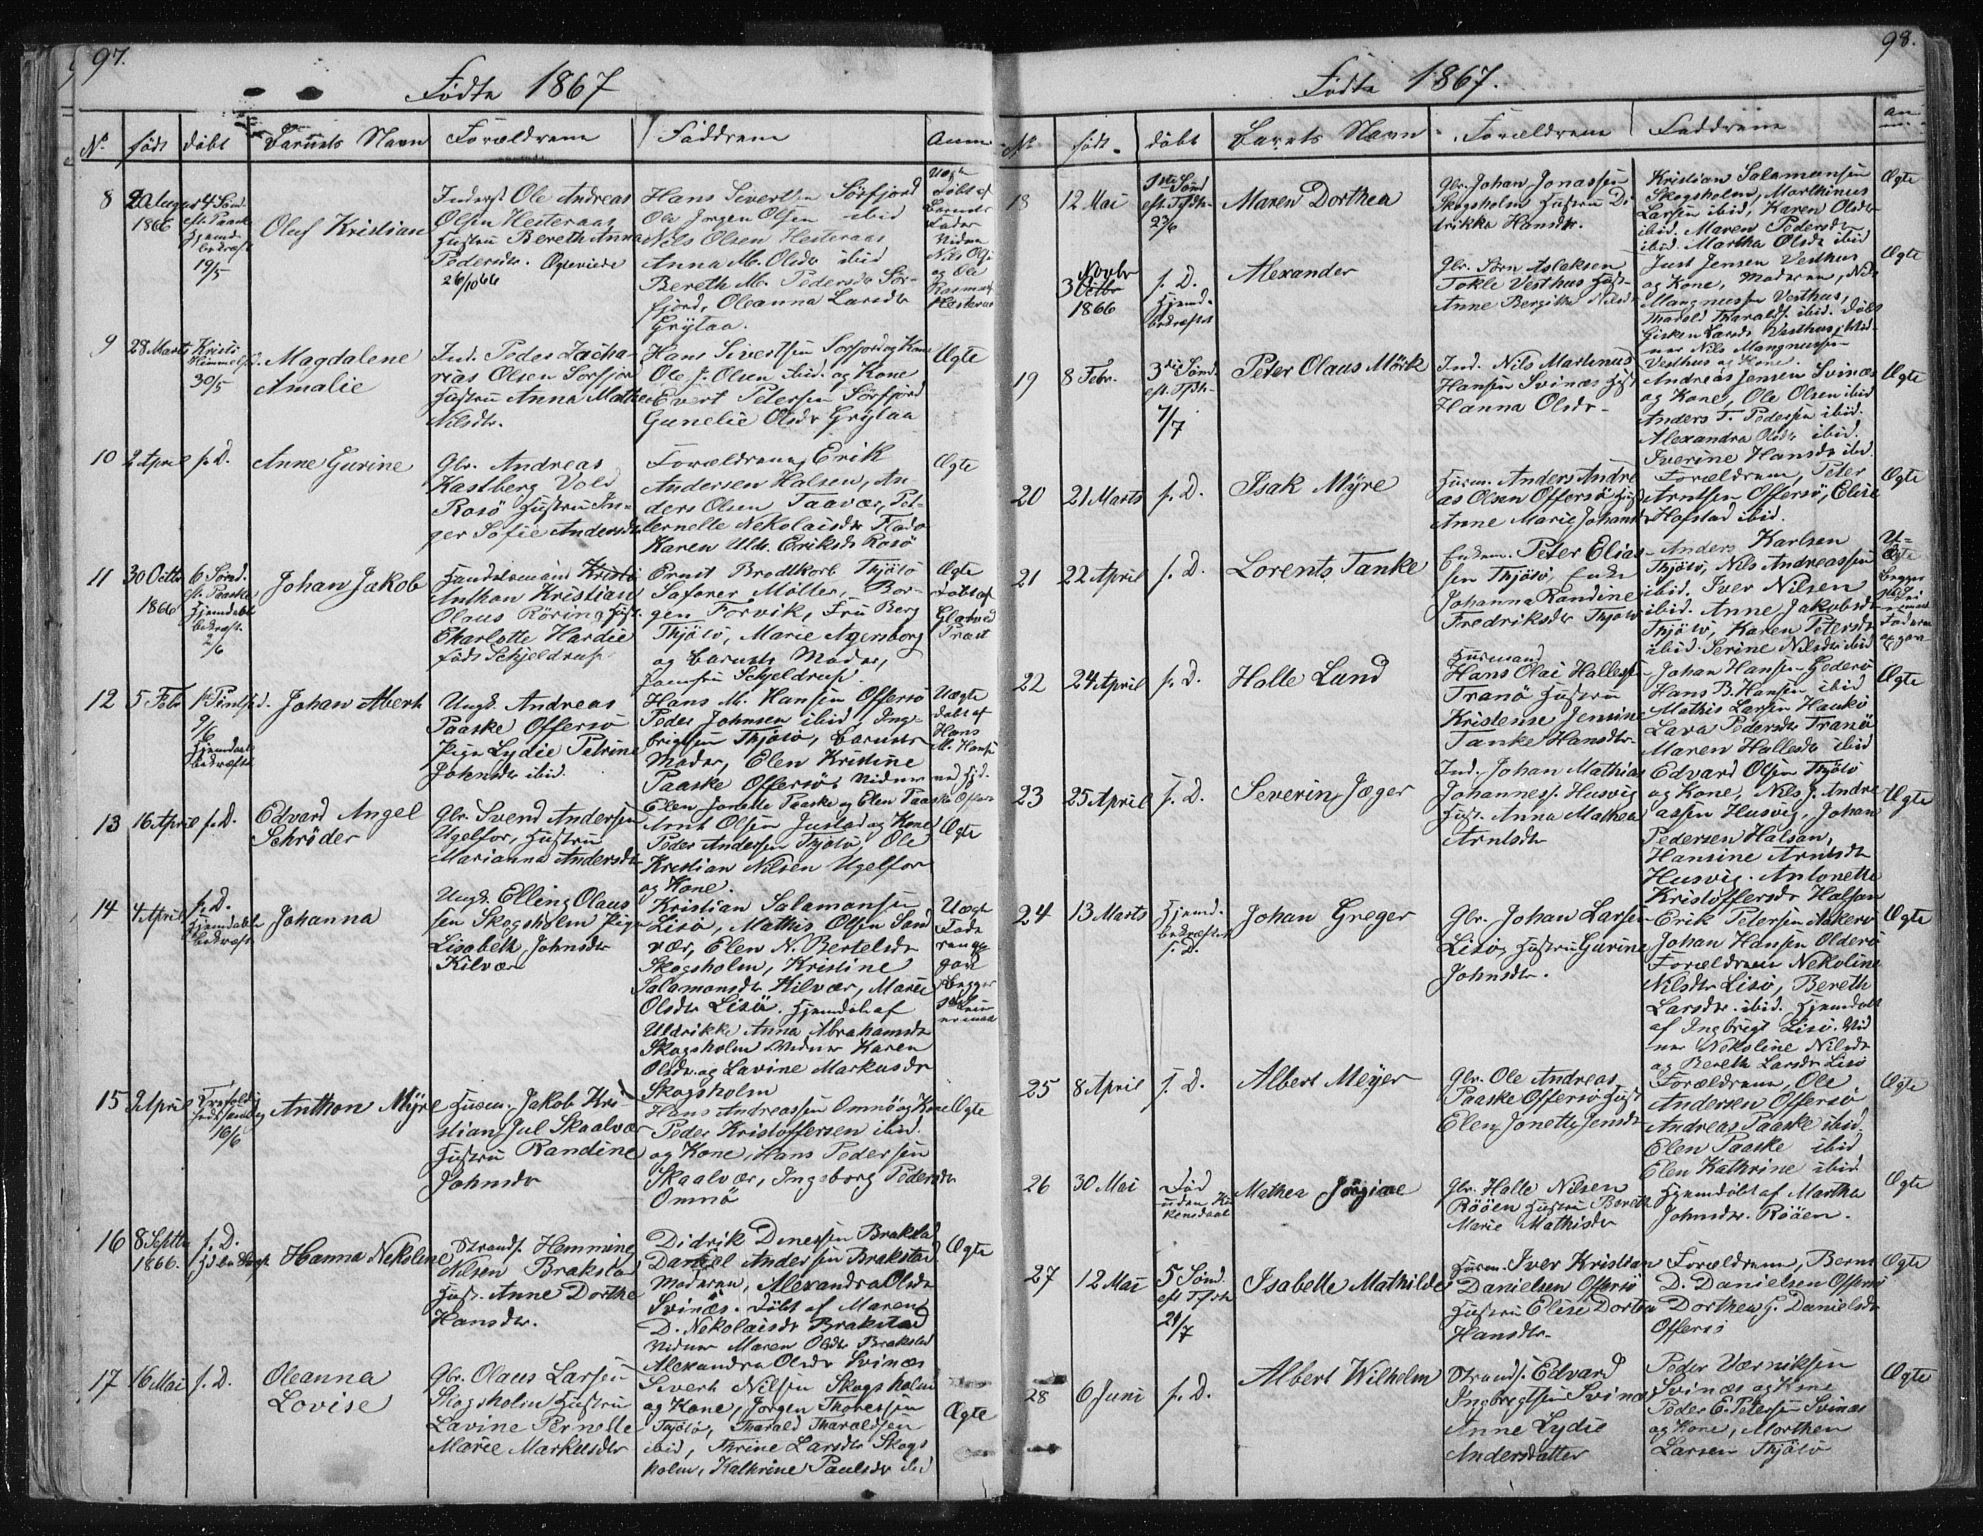 97.
Fødte 1867
No født døbt Barnets Navn Forældrene Faddrene Anm
8
20 August
1866
4 Sønd.
eft. Paaske
Hjemd.
bekræft.
19/5
Oluf Kristian
Inderst Ole Andreas
Olsen Hesteraas
Hustru Bereth Anna
Pedersdr. Ægteviede
26/10 66
Hans Sivertsen Sörfjord
Ole Jørgen Olsen ibid
Nils Olsen Hesteraas
Anna M. Olsdr ibid
Bereth M. Pedersdr Sör-
fjord, Oleanna Larsdr
Grytaa.
Uægte
døbt af
Barnets
Fader
Vidner
Nils Olsen
og Ole
Rasmus
Hesteraas
9
28 Marts
Kristi
Himmelf.d.
30/5
Magdalene
Amalie
Ind. Peder Zacha-
rias Olsen Sörfjor
Hustru Anna Mathea
Nilsdr.
Hans Sivertsen Sorfjord og Kone
Ole J. Olsen ibid. og Kone
Evert Petersen Sörfjord
Gunelie Olsdr Grytaa
Ægte
10
2 April
s. D.
Anne Gurine
Gbr. Andreas
Kastberg Vold
Rosö Hustru In-
ger Sofie Andersdr
Forældrene, Erik
Andersen Halsen, An-
ders Olsen Taavær, Pet-
ternelle Nekolaisdr Flado
Karen Uldr. Eriksdr Rosö
Ægte
11
30 Octbr
1866
6 Sønd.
eft. Paaske
Hjemdøbt
bekræft.
2/6
Johan Jakob
Handelsmand
Anthon Kristian
Olaus Röring Hust.
Charlotte Hardie
föds Schjeldrup
Ernst Brodtkorb Thjötö
Jaforer Mölter, Bor-
gen Forvik, Fru Berg
Thjötö, Marie Agersborg
og Barnets Moder,
Jomfru Schjeldrup.
Ægte
døbt af
Glatved
Præst
12
5 Febr
1ste Pintsed.
9/6
Hjemdøbt
bekræftet
Johan Albert
Ungk. Andreas
Paaske Offersö
Pige Lydie Petrine
Johnsdr ibid.
Hans M. Hansen Offersö
Peder Johnsen ibid, Ing-
brigtsen Thjötö, Barnets
Moder, Elen Kristine
Paaske Offersö. Vidner
Elen Jonette Paaske og Elen Paaske Offersö
Uægte
døbt af
Hans
M. Hansen
ved Hjd.
13
16 April
s. D.
Edvard Angel
Schröder
Gbr. Svend Andersen
Ugelfor, Hustru
Marianna Andersdr
Arnt Olsen Justad og Kone
Peder Andersen Thjötö, Ole
Kristian Nilsen Ugelfor
og Kone.
Ægte
14
4 April
s. D.
Hjemdøbt
bekræft
Johanna
Ungk. Elling Olaus
sen Skogsholm Pige
Lisabeth Johnsdr
Kilvær
Kristian Salamonsen
Lisö, Mathis Olsen Sand
vær, Elen N. Bertelsdr
Skogsholm, Kristine
Salamonsdr Kilvær, Marie
Olsdr Lisö. Hjemdøbt af
Uldrikke Anna Abrahamsdr
Skogsholm Vidner Karen
Olsdr og Lavine Markusdr
Skogsholm
Uægte
15
2 April
Trefoldig
heds Sønda
16/6
Anthon Myre
Husm. Jakob Kri-
stian Jul Skaalvær
Hustru Randine
Johnsdr
Hans Andreassen Omnö og Kone
Peder Kristoffersen ibid.
og Kone, Hans Pedersen
Skaalvær, Ingeborg Pedersdr
Omnö
Ægte
16
8 Septbr
1866.
s. D.
Hanna Nekoline
Strands. Hemming
Nilsen Brakstad
Hust. Anne Dorthe
Hansdr.
Didrik Dinessen Brakstad
Daniel Andersen Brakstad
Moderen, Alexandra Olsdr
Svinæs. Døbt af Maren
D. Nekolaisdr Brakstad
Vidner Maren Olsdr Brakstad
Alexandra Olsdr Svinæs
Ægte
17
16 Mai
s. D.
Oleanna
Lovise
Gbr. Olaus Larsen
Skogsholm Hustru
Lavine Pernelle
Marie Markusdr
Sivert Nilsen Skogsholm
og Kone, Jørgen Thoresen
Thjötö, Tharald Tharaldsen
ibid, Thrine Larsdr Skogs
holm, Kathrine Paulsdr ibid
Ægte
98.
Fødte 1867.
No født. døbt Barnets Navn Forældrene Faddrene an
18
12 Mai
1ste Sønd
eft. Tfsdr.
23/6
Maren Dorthea
Gbr. Johan Jonassen
Skogsholm Hustru Di
drikka Hansdr.
Kristian Salamonsen
Skogsholm, Marthinus
Larsen ibid, Karen Olsdr
ibid. Maren Pedersdr
ibid. Martha Olsdr ibid
Ægte
Novbr
3 Octbr
1866
s. D.
Hjemd.
bekræftet
Alexander
Gbr. Sørn Aslaksen
Tokle Vesthus Hust.
Anne Bergitte Nilsdr
Just Jensen Vesthus
og Kone, Moderen, Nils
Mangnussen Vesthus,
Tharald Tharalds. ibid. Døbt
Gisken Larsdr Vesthus, Vid-
ner Nils Mangnussen
Vesthus og Kone.
Ægte
19
8 Febr.
3die Sønd.
eft. Tfsdr.
7/7
Peter Olaus Mörk
Ind. Nils Martinus
Hansen Svinæs Hust
Hanna Olsdr.
Andreas Jensen Svinæs
og Kone, Ole Olsen ibid
Anders T. Pedersen ibid.
Alexandra Olsdr ibid.
Iverine Hansdr ibid.
Ægte
20
21 Marts
s. D.
Isak Myre
Husm. Anders Andre
as Olsen Offersö Hust
Anne Marie Johansdr
Forældrene, Peter
Arntsen Offersö, Elise
Hofstad ibid.
Ægte
21
22 April
s. D.
Lorents Tanke
Enkem. Peter Elias-
sen Thjötö, Enke
Johanna Randine
Fredriksdr Thjötö
Anders Karlsen
Thjötö, Nils Andreassen
ibid. Iver Nilsen
ibid. Anne Jakobsdr
Thjötö, Karen Petersdr
ibid. Serine Nilsdr ibid
U-
Ægte
22
24 April
s. D.
Halle Lund
Husmand
Hans Olai Hallesen
Tranö Hustru
Kristense Jensine
Tanke Hansdtr
Johan Hansen Goderö
Hans B. Hansen ibid
Mathis Larsen Haukö
Lava Pedersdr Tranö
Maren Hallesdr ibid
Ægte
23
25 April
s. D.
Severin Jæger
Ind. Johan Mathias
Johanness. Husvig
Hust. Anna Mathea
Arntsdr
Edvard Olsen Thjötö
og Kone, Nils J. Andre
assen Husvig, Johan
Pedersen Halsan,
Hansine Arntsdr
Husvig. Antonette
Kristoffersdr Halsan
Ægte
24
13 Marts
Hjemd.
bekræftet
s. D.
Johan Greger
Gbr. Johan Larsen
Lisö, Hustru Gurine
Johnsdr.
Erik Petersen Aakerö
Johan Hansen Olderö
Forældrene Nekoline
Nilsdr Lisö, Bereth
Larsdr. ibid. Hjemdøbt
af Ingbrigt Lisö. Vid
ner Nekoline Nilsdr
og Bereth Larsdr Lisö
Ægte
25
8 April
s. D.
Albert Meyer
Gbr. Ole Andreas
Paaske Offersö Hust
Elen Jonette Jensdr
Forældrene, Ole
Andersen Offersö
Andreas Paaske ibid.
Elen Paaske ibid
Elen Kathrine ibid
Ægte
26
30 Mai
Død
uden Kir
kensdaab
Mathea Jörgine
Gbr. Halle Nilsen
Rööen Hustru Bereth
Marie Mathisdr
Hjemdøbt af Martha
Johnsdr. Rööen.
Ægte
27
12 Mai
5 Sønd.
eft Tfsdr
21/7
Isabelle Mathilde
Husm. Iver Kristian
Danielsen Offersö
Hustru Elise Dorthea
Hansdtr.
Forældrene, Bernt
D. Danielsen Offersö
Dorthea H. Danielsdr
Offersö
Ægte
28
6 Juni
s. D.
Albert Wilhelm
Strands. Edvard
Ingbregtsen Svinæs
Anne Lydie
Andersdatter
Peder Værniksen
Svinæs og Kone
Peder E. Petersen Svinæs
og Kone, Morthen
Larsen Thjötö
Ægte